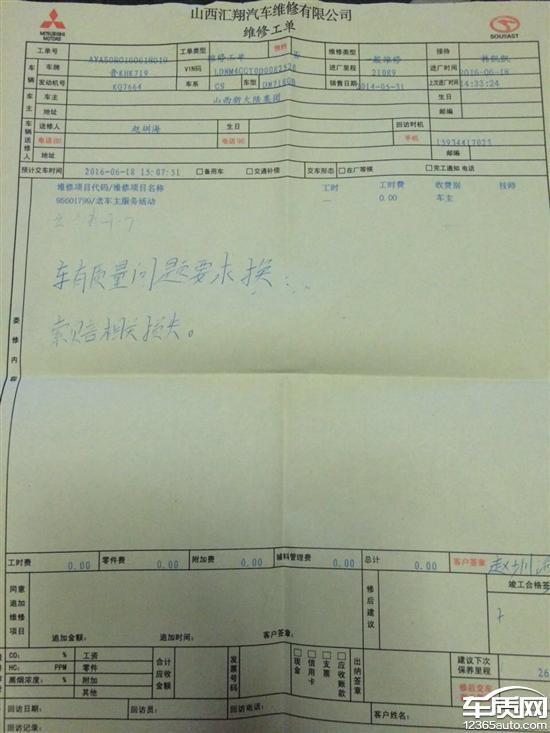 山西汇翔汽车维修有限公司
维修工单
MITSUBISHI MOTORS
SOUEAST
预约 否
工单号 工单类型 维修工单 维修类型 一般维修 接待
车辆 车牌 晋KHK719 VIN码 进厂里程 21089 进厂时间 2016-06-18
发动机号 KQ7664 车系 C5 车型 销售日期 2014-05-31 上次进厂时间 14:33:24
车主 车主 山西新大陆集团 生日
地址 邮编
车辆送修人 送修人 生日 回访时机
电话(O) 电话(H) 手机
地址 邮编
预计交车时间 2016-06-18 15:07:31 □备用车 □交通补偿 交车形式 □在厂等候 □完工通知 电话
委修内容
维修项目代码/维修项目名称 工时 工时费 收费别 技师
95601799/老车主服务活动 — 0.00 车主
车有质量问题要求换
索赔相关损失。
工时费 0.00 零件费 0.00 附加费 0.00 辅料管理费 0.00 总计 0.00 客户签章
同意追加维修项目 修后建议 竣工合格签
追加金额: 追加时间: 客户签章:
CO: % 工资 合计应收金额 发票号码 □现金 □信用卡 □支票 □应收账款 出纳签章 建议下次保养里程 26
HC: PPM 零件
黑烟浓度: % 附加
其他
回访日期: 回访员: 回访电话: 客户姓名:
回访记录:
车质网
12365auto.com